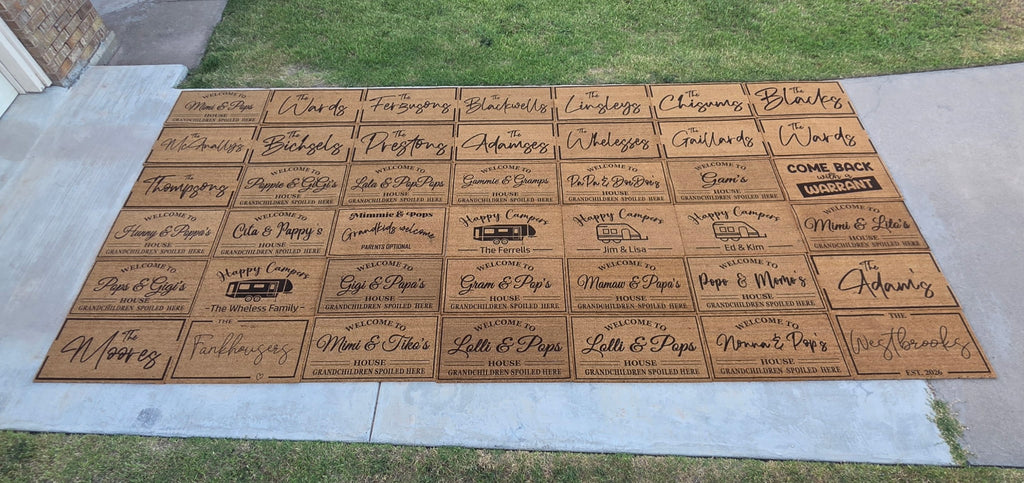 WELCOME TO
Mimi & Pops
HOUSE
GRANDCHILDREN SPOILED HERE
The
Wards
The
Fergusons
The
Blackwells
The
Linsleys
The
Chisums
The
Blacks
The
McAnally's
The
Bichsels
The
Prestons
The
Adamses
The
Whelesses
The
Gaillards
The
Wards
The
Thompsons
WELCOME TO
Pappie & GiGi's
HOUSE
GRANDCHILDREN SPOILED HERE
WELCOME TO
Lala & PapPaps
HOUSE
GRANDCHILDREN SPOILED HERE
WELCOME TO
Gammie & Gramps
HOUSE
GRANDCHILDREN SPOILED HERE
WELCOME TO
HOUSE
GRANDCHILDREN SPOILED HERE
WELCOME TO
Gam's
HOUSE
GRANDCHILDREN SPOILED HERE
COME BACK
with a
WARRANT
WELCOME TO
& Pappa's
HOUSE
GRANDCHILDREN SPOILED HERE
WELCOME TO
Cita & Pappy's
HOUSE
GRANDCHILDREN SPOILED HERE
Mimmie & Pops
Grandkids welcome
PARENTS OPTIONAL
Happy Campers
The Ferrells
Happy Campers
Jim & Lisa
Happy Campers
Ed & Kim
WELCOME TO
Mimi & Lito's
HOUSE
GRANDCHILDREN SPOILED HERE
WELCOME TO
Paps & Gigi's
HOUSE
GRANDCHILDREN SPOILED HERE
Happy Campers
The Wheless Family
WELCOME TO
Gigi & Papa's
HOUSE
GRANDCHILDREN SPOILED HERE
WELCOME TO
Gram & Pop's
HOUSE
GRANDCHILDREN SPOILED HERE
WELCOME TO
Mamaw & Papa's
HOUSE
GRANDCHILDREN SPOILED HERE
WELCOME TO
Popo & Momo's
HOUSE
GRANDCHILDREN SPOILED HERE
The
Adam's
The
Moores
THE
Fankhousers
WELCOME TO
Mimi & Tiko's
HOUSE
GRANDCHILDREN SPOILED HERE
WELCOME TO
Lolli & Pops
HOUSE
GRANDCHILDREN SPOILED HERE
WELCOME TO
Lolli & Pops
HOUSE
GRANDCHILDREN SPOILED HERE
WELCOME TO
Nonna & Pop's
HOUSE
GRANDCHILDREN SPOILED HERE
THE
Westbrooks
EST. 2026